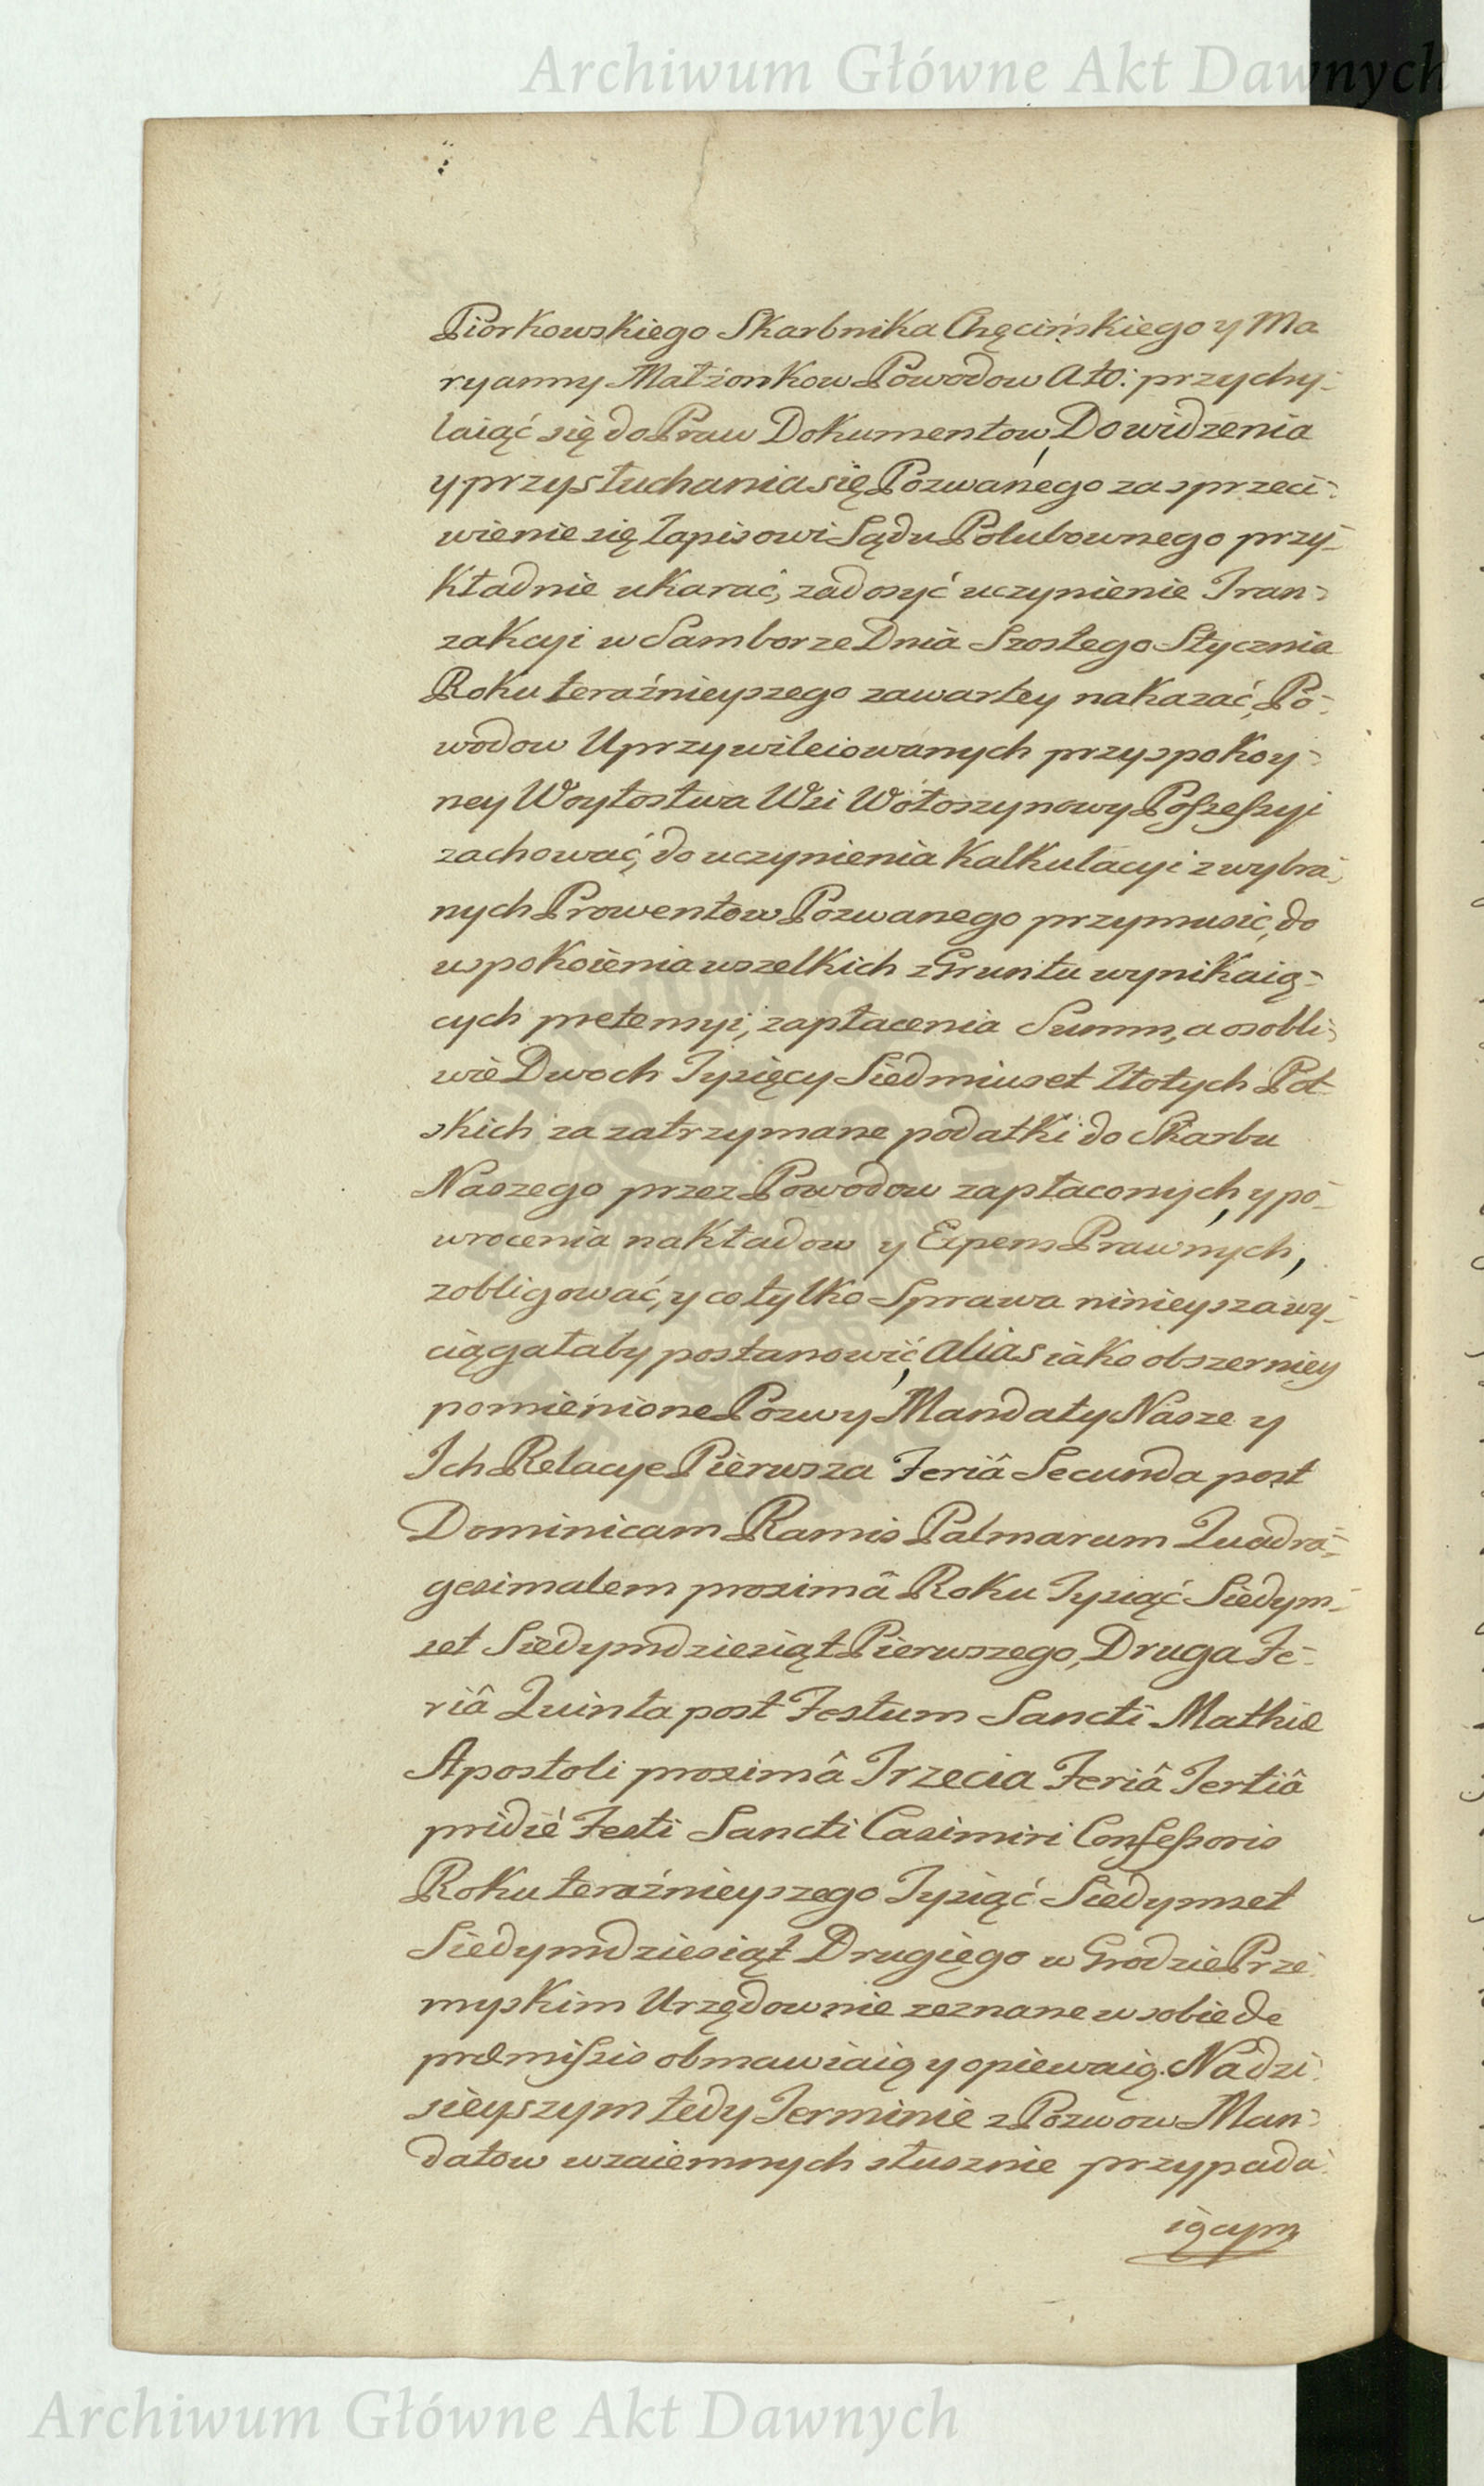 Archiwum Główne Akt Dawnych
Piorkowskiego Skarbnika Chęcińskiego y Ma
ryanny Małżonkow Powodow Ato: przychy-
laiąć się do Praw Dokumentow, Do widzenia
y przysłuchania się Pozwanego za sprzeci-
wienie się Zapisowi Sądu Polubownego przy-
kładnie ukarać, zadosyć uczynienie Tran-
zakcyi w Samborze Dnia Szostego Stycznia
Roku teraźnieyszego zawartey nakazać, Po-
wodow Uprzywileiowanych przy spokoy-
ney Woytostwa Wsi Wołoszynowy Possessyi
zachować, do uczynienia Kalkulacyi z wybra-
nych Prowentow Pozwanego przymusić, do
uspokoienia wszelkich z Gruntu wynikaią-
cych pretensyi, zapłacenia Summ, a osobli-
wie Dwoch Tysięcy Siedmiuset Złotych Pol-
skich za zatrzymane podatki do Skarbu
Naszego przez Powodow zapłaconych, y po-
wrocenia nakładow y Expens Prawnych,
zobligować, y co tylko Sprawa ninieysza wy-
ciągałaby postanowić, alias iako obszerniey
pomienione Pozwy Mandaty Nasze y
Ich Relacye Pierwsza Feriâ Secunda post
Dominicam Ramis Palmarum Quadra-
gesimalem proximâ Roku Tysiąć Siedym-
set Siedymdziesiąt Pierwszego, Druga Fe-
riâ Quinta post Festum Sancti Mathiæ
Apostoli proximâ Trzecia Feriâ Tertiâ
pridiè Festi Sancti Casimiri Confessoris
Roku teraźnieyszego Tysiąć Siedymset
Siedymdziesiąt Drugiego w Grodzie Prze-
myskim Urzędownie zeznane w sobie de
præmissis obmawiaią y opiewaią. Na dzi-
sieyszym tedy Terminie z Pozwow Man-
datow wzaiemnych słusznie przypada-
iącym
Archiwum Główne Akt Dawnych